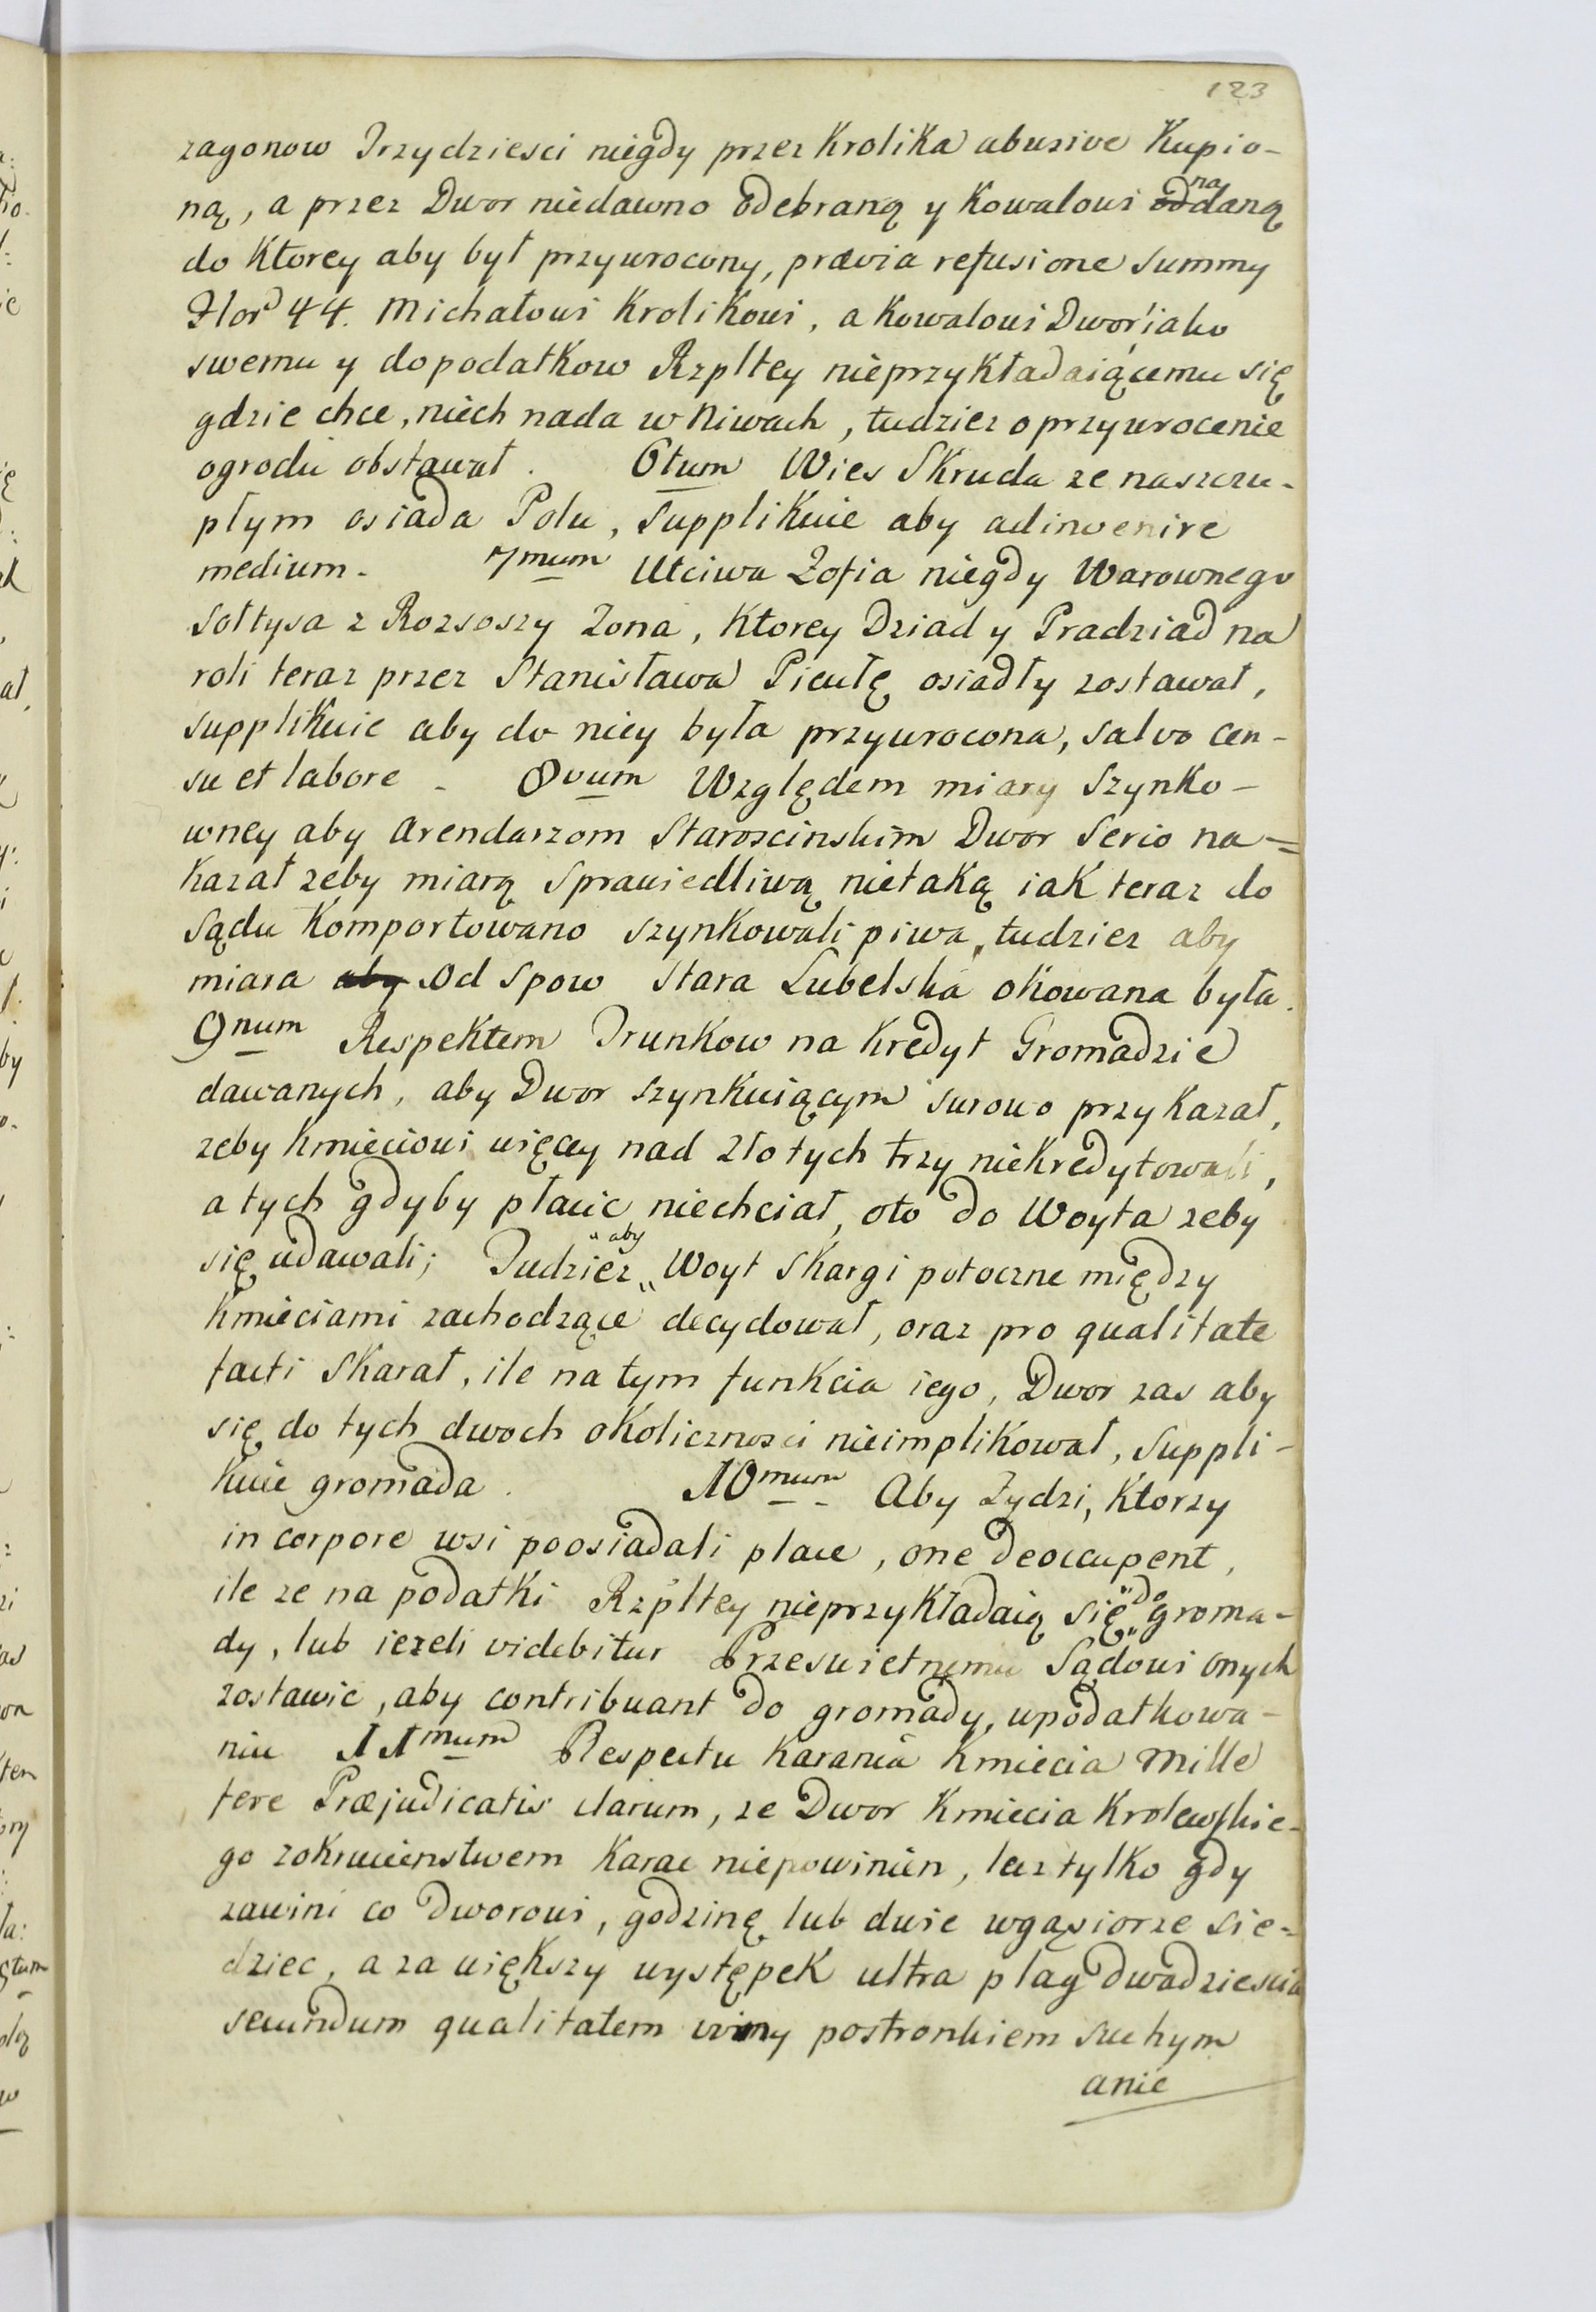 123
zagonow Trzydziesci niegdy przez Krolika abusive Kupio-
ną, a przez Dwor niedawno odebraną y Kowalowi oddaną na
do Ktorey aby był przywrocony, prævia refusione summy
Flor 44. Michałowi Krolikowi, a Kowalowi Dwor iako
swemu y do podatkow Rzpltey nieprzykładaiącemu się
gdzie chce, niech nada w Niwach, tudziez o przywrocenie
ogrodu obstawał. 6tum Wies Skruda ze naszczu-
płym osiada Polu, Supplikuie aby adinvenire
medium. 7mum Utciwa Zofia niegdy Warownego
Sołtysa z Rozsoszy Zona, Ktorey Dziad y Pradziad na
roli teraz przez Stanisława Piculę osiadły zostawał,
supplikuie aby do niey była przywrocona, salvo cen-
su et labore. 8vum Względem miary Szynko-
wney aby Arendarzom Staroscinskim Dwor Serio na=
kazał zeby miarą Sprawiedliwą nietaką iak teraz do
Sądu Komportowano szynkowali piwa, tudziez aby
miara aby od Spow Stara Lubelska okowana była.
9num Respektem Trunkow na kredyt Gromadzie
dawanych, aby Dwor szynkuiącym surowo przykazał,
zeby Kmieciowi więcey nad złotych trzy niekredytowali,
a tych gdyby płacic niechciał, oto do Woyta zeby
się udawali; Tudziez "aby" Woyt Skargi potoczne między
Kmieciami zachodzące decydował, oraz pro qualitate
facti Skarał, ile na tym funkcia iego, Dwor zas aby
się do tych dwoch okolicznosci nieimplikował, Suppli-
kuie gromada. 10mum Aby Zydzi, Ktorzy
in corpore wsi poosiadali place, one deoccupent,
ile ze na podatki Rzpltey nieprzykładaią się "do" groma-
dy, lub iezeli videbitur Przeswietnemu Sądowi onych
zostawic, aby contribuant do gromady, upodatkowa-
niu 11mum Respectu karania Kmiecia mille
fere Præjudicatis clarum, ze Dwor Kmiecia Krolewskie-
go zokrucienstwem karac niepowinien, lecz tylko gdy
zawini co Dworowi, godzinę lub dwie wgąsiorze sie-
dziec, a za większy występek ultra plag dwadziescia
secundum qualitatem winy postronkiem suchym
anie